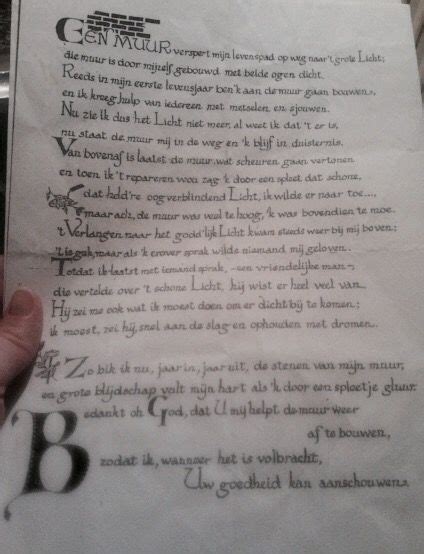 EEN MUUR verspert mijn levenspad op weg naar 't grote Licht;
die muur is door mijzelf gebouwd met beide ogen dicht.
Reeds in mijn eerste levensjaar ben 'k aan de muur gaan bouwen,
en ik kreeg hulp van iedereen met metselen en sjouwen.
Nu zie ik dus het Licht niet meer, al weet ik dat 't er is,
nu staat de muur mij in de weg en 'k blijf in duisternis.
Van bovenaf is laatst de muur wat scheuren gaan vertonen
en toen ik 't repareren wou zag 'k door een spleet, dat schone,
dat held're oog verblindend Licht, ik wilde er naar toe....,
maar ach, de muur was veel te hoog, 'k was bovendien te moe.
't Verlangen naar het godd'lijk Licht kwam steeds weer bij mij boven;
't is gek, maar als 'k erover sprak wilde niemand mij geloven.
Totdat ik laatst met iemand sprak, -een vriendelijke man-
die vertelde over 't schone Licht, hij wist er heel veel van.
Hij zei me ook wat ik moest doen om er dicht bij te komen;
ik moest, zei hij, snel aan de slag en ophouden met dromen.
Zo bik ik nu, jaar in, jaar uit, de stenen van mijn muur,
en grote blijdschap vult mijn hart als 'k door een spleetje gluur.
Bedankt oh God, dat U mij helpt de muur weer
af te bouwen,
zodat ik, wanneer het is volbracht,
Uw goedheid kan aanschouwen.